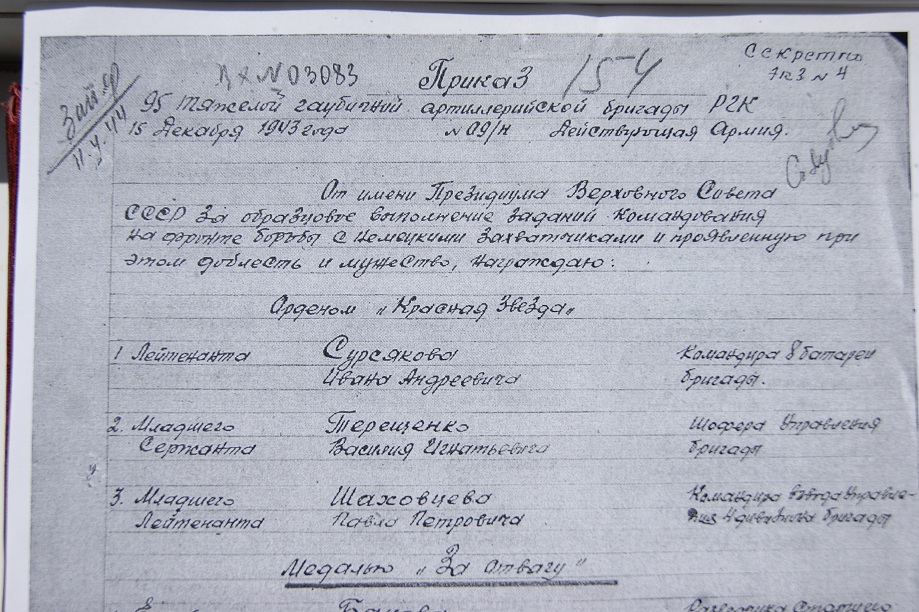 Секретно
Экз N 4
Вх N 03083
Приказ
154
11.4.44
95 тяжелой гаубичний артиллерийской бригады РГК
15 Декабря 1943 года N 09/н Действующая Армия.
От имени Президиума Верховного Совета
СССР за образцовое выполнение заданий командования
на фронте борьбы с немецкими захватчиками и проявленную при
этом доблесть и мужество, награждаю:
Орденом „Красная Звезда„
1 Лейтенанта Сурсякова Командира 8 батареи
Ивана Андреевича бригады.
2. Младшего Терещенко Шофера Управления
Сержанта Василия Игнатьевича бригады
3. Младшего Шаховцева Командира взвода управле-
Лейтенанта Павла Петровича ния дивизиона бригады
Медалью „За отвагу"